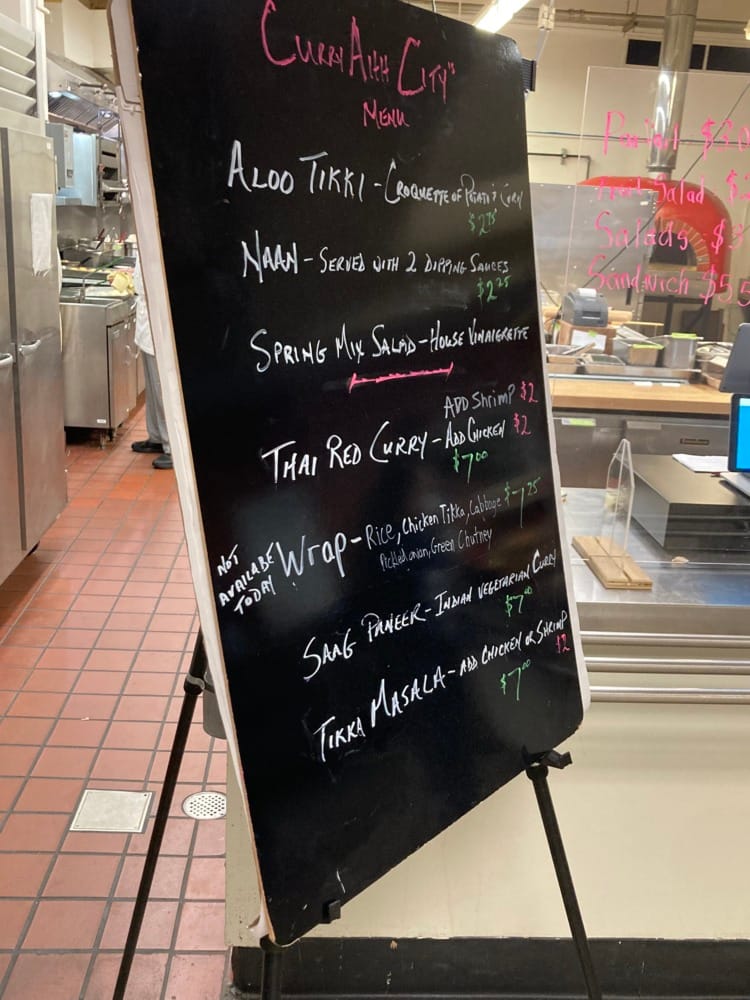 Curry Ahh City"
Menu
Aloo Tikki - Croquette of Potato & Curry
$2.75
Naan - Served with 2 Dipping Sauces
$2.25
Spring Mix Salad - House Vinaigrette
Add Shrimp $2
Thai Red Curry - Add Chicken $2
$7.00
Not
Availabe
Today
Wrap - Rice, Chicken Tikka, Cabbage $7.25
Pickled onion, Green Chutney
Saag Paneer - Indian Vegetarian Curry
$7.00
Tikka Masala - Add Chicken or Shrimp
$2
$7.00
Parfait $3.0
Fruit Salad $
Salads $
Sandwich $5.5